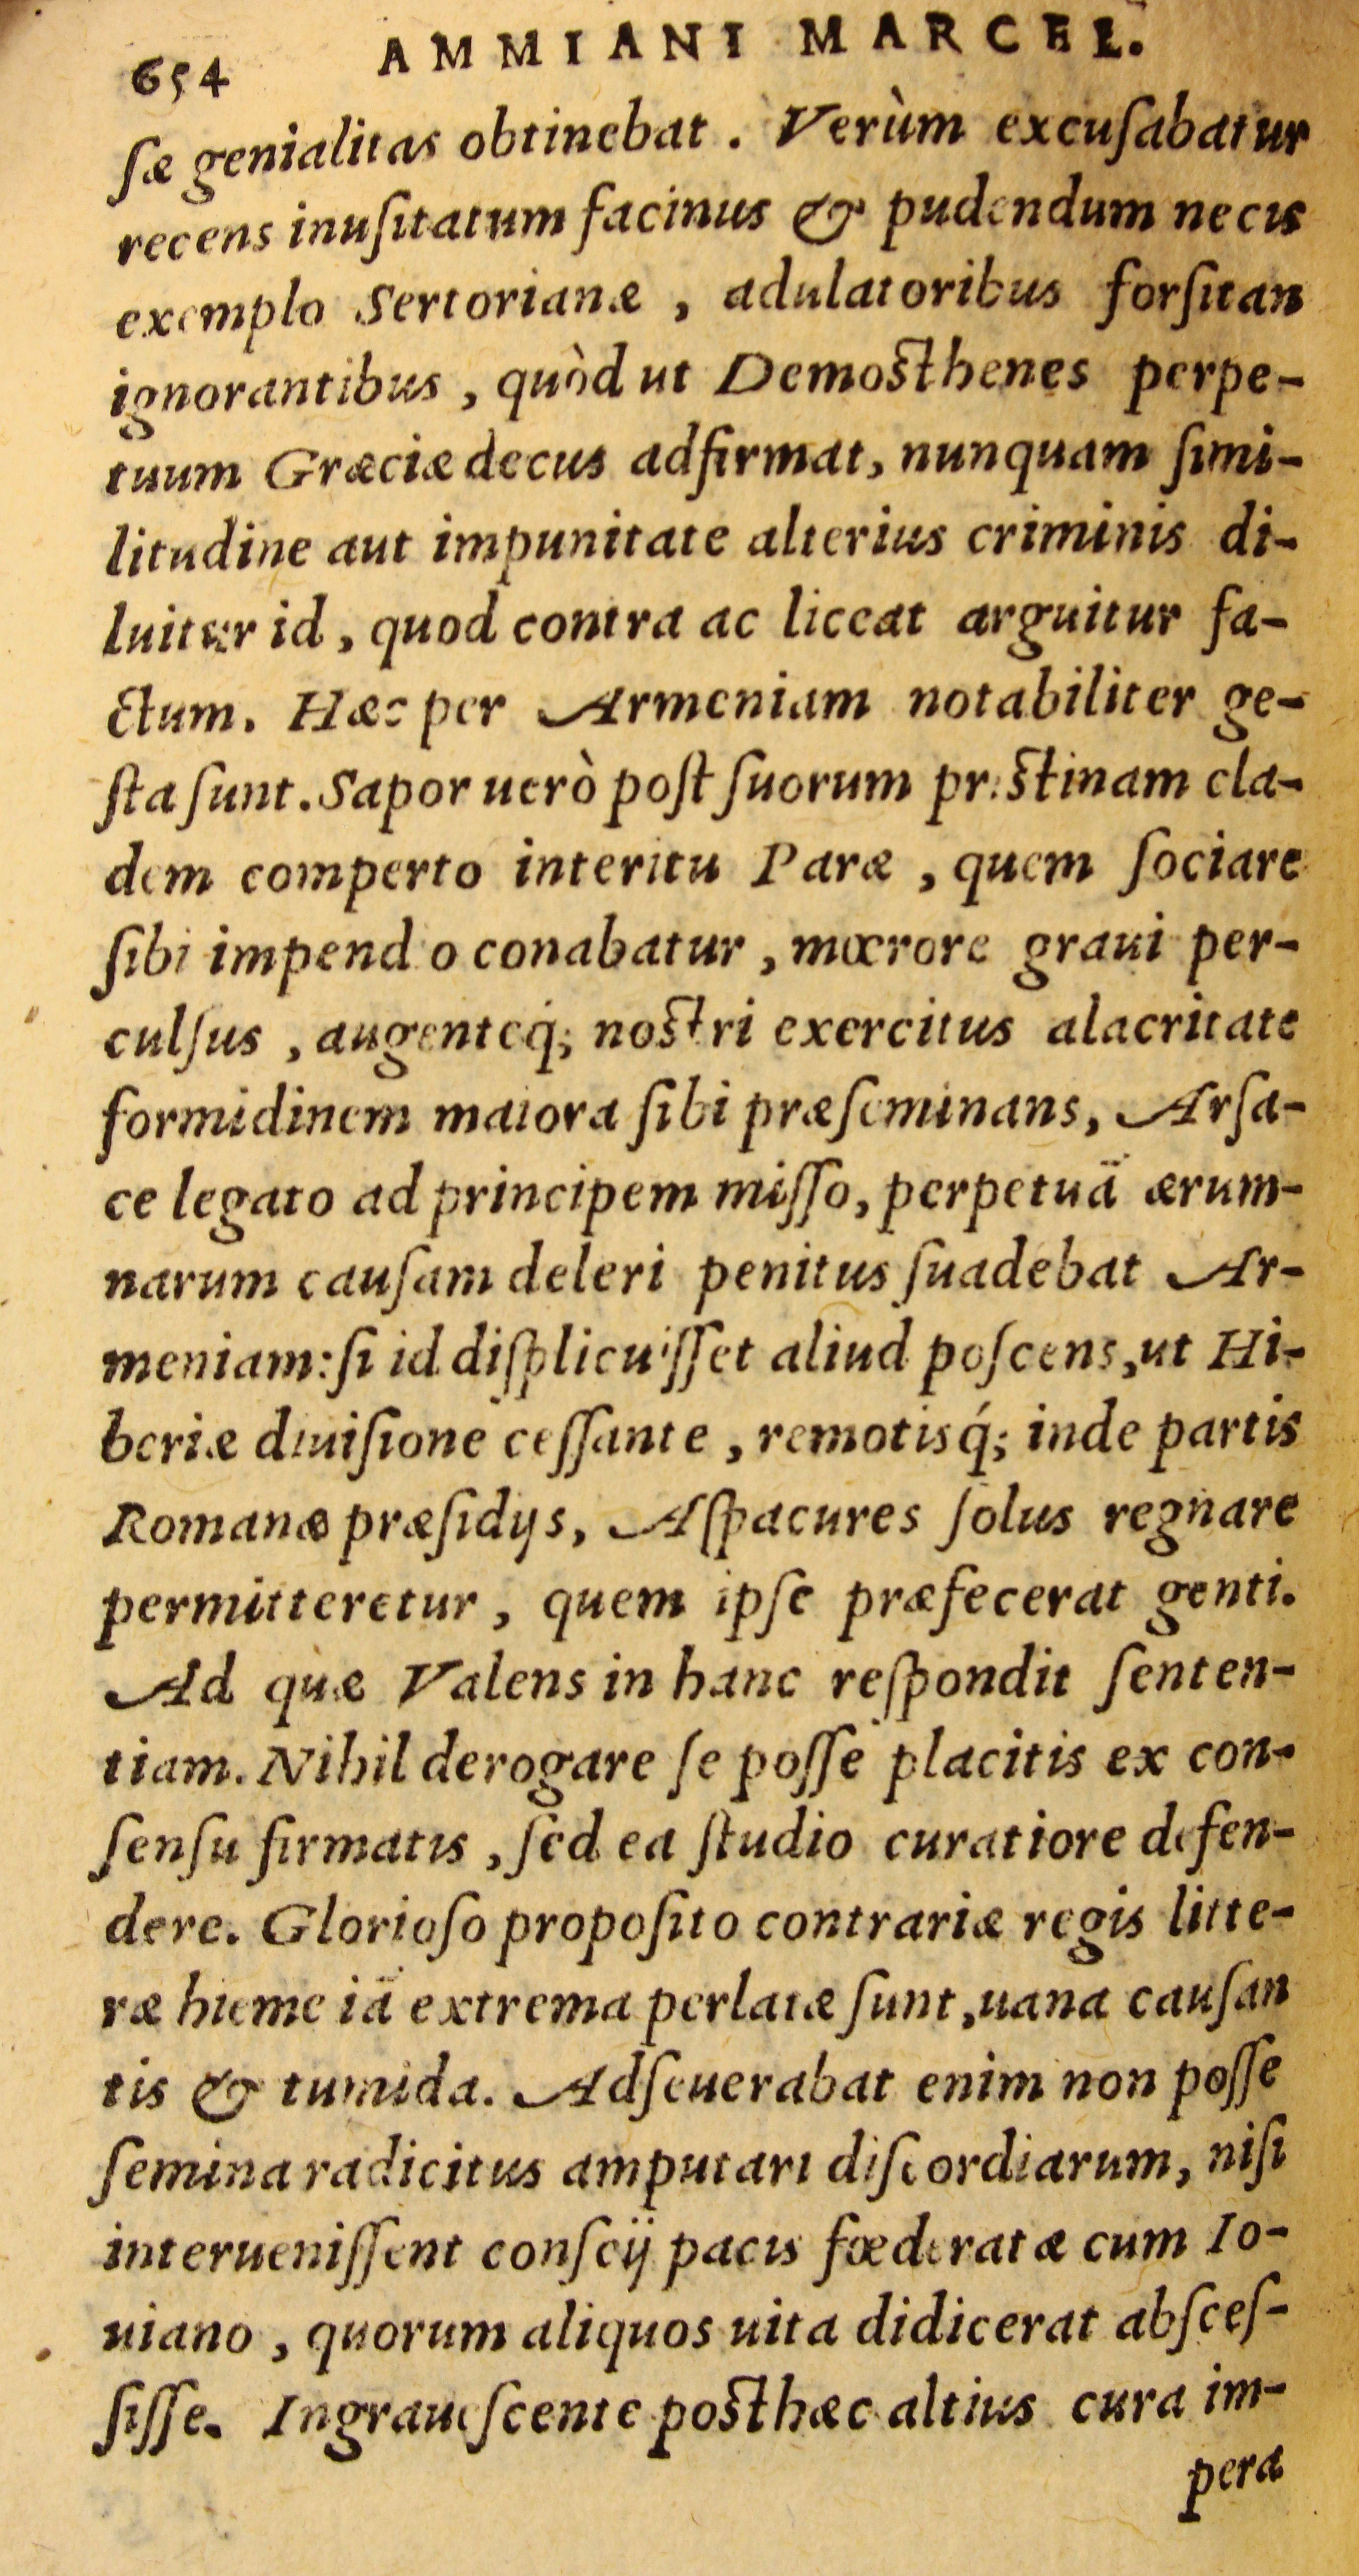 654 AMMIANI MARCEL.
ſæ genialitas obtinebat. Verùm excuſabatur
recens inuſitatum facinus & pudendum necis
exemplo Sertorianæ, adulatoribus forſitan
ignorantibus, quòd ut Demoſthenes perpe-
tuum Græciæ decus adfirmat, nunquam ſimi-
litudine aut impunitate alterius criminis di-
luitur id, quod contra ac liceat arguitur fa-
ctum. Hæc per Armeniam notabiliter ge-
ſta ſunt. Sapor uerò poſt ſuorum priſtinam cla-
dem comperto interitu Paræ, quem ſociare
ſibi impendio conabatur, mœrore graui per-
culſus, augenteq́; noſtri exercitus alacritate
formidinem maiora ſibi præſeminans, Arſa-
ce legato ad principem miſſo, perpetuā ærum-
narum cauſam deleri penitus ſuadebat Ar-
meniam: ſi id diſplicuiſſet aliud poſcens, ut Hi-
beriæ diuiſione ceſſante, remotisq́; inde partis
Romanæ præſidijs, Aſpacures ſolus regnare
permitteretur, quem ipſe præfecerat genti.
Ad quæ Valens in hanc reſpondit ſenten-
tiam. Nihil derogare ſe poſſe placitis ex con-
ſenſu firmatis, ſed ea ſtudio curatiore defen-
dere. Glorioſo propoſito contrariæ regis litte-
ræ hieme iā extrema perlatæ ſunt, uana cauſan
tis & tumida. Adſeuerabat enim non poſſe
ſemina radicitus amputari diſcordiarum, niſi
interueniſſent conſcij pacis fœderatæ cum Io-
uiano, quorum aliquos uita didicerat abſceſ-
ſiſſe. Ingraueſcente poſthæc altius cura im-
pera